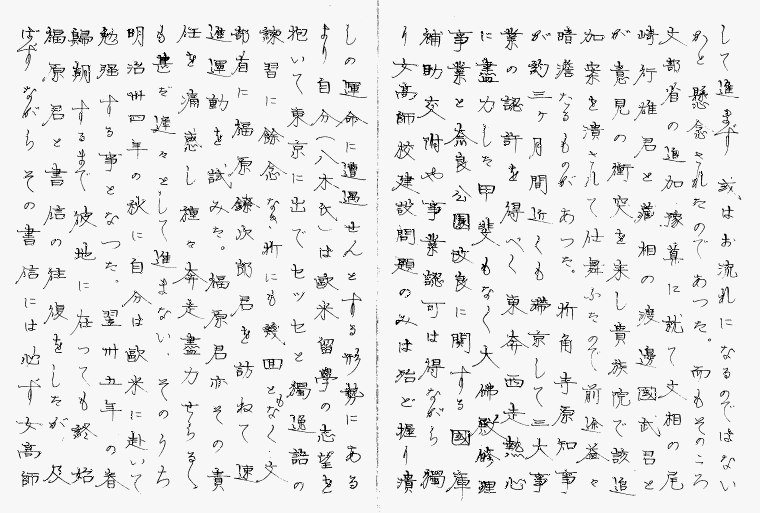 して進まず或はお流れになるのではない
かと懸念されたのであつた。而もそのころ
文部省の追加豫算に就て文相の尾
崎行雄君と藏相の渡邊國武君と
が意見の衝突を来し貴族院で該追
加案を潰されて仕舞ふたので前途益々
暗澹たるものがあつた。折角寺原知事
が約三ヶ月間近くも滯京して三大事
業の認許を得べく東奔西走熱心
に盡力した甲斐もなく大佛殿修理
事業と奈良公園改良に関する國庫
補助交附や事業認可は得ながら獨
り女高師校建設問題のみは殆ど握り潰
しの運命に遭遇せんとする形勢にある
より自分(八木氏)は歐米留學の志望を
抱いて東京に出でセッセと獨逸語の
練習に餘念なき折にも幾回ともなく文
部省に福原鐐次郎君を訪ねて速
進運動を試みた。福原君亦その責
任を痛感し種々奔走盡力せらるゝ
も甚だ遅々として進まない、そのうち
明治卅四年の秋に自分は歐米に赴いて
勉强する事となつた。翌卅五年の春
歸朝するまで彼地に在つても終始
福原君と書信の往復をしたが、及
ばずながらその書信には必ず女高師